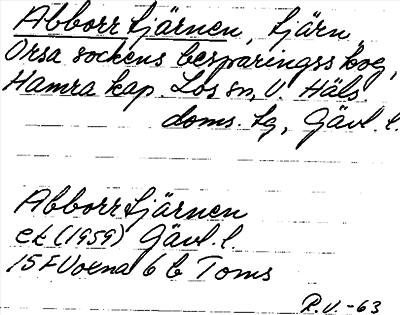 Abborrtjärnen, tjärn,
Orsa sockens besparingsskog,
Hamra kap. Los sn, V. Häls.
doms. tg, Gävl. l.
Abborrtjärnen
ek (1959) Gävl. l.
15 F Voxna 6 b Toms
R.V. -63